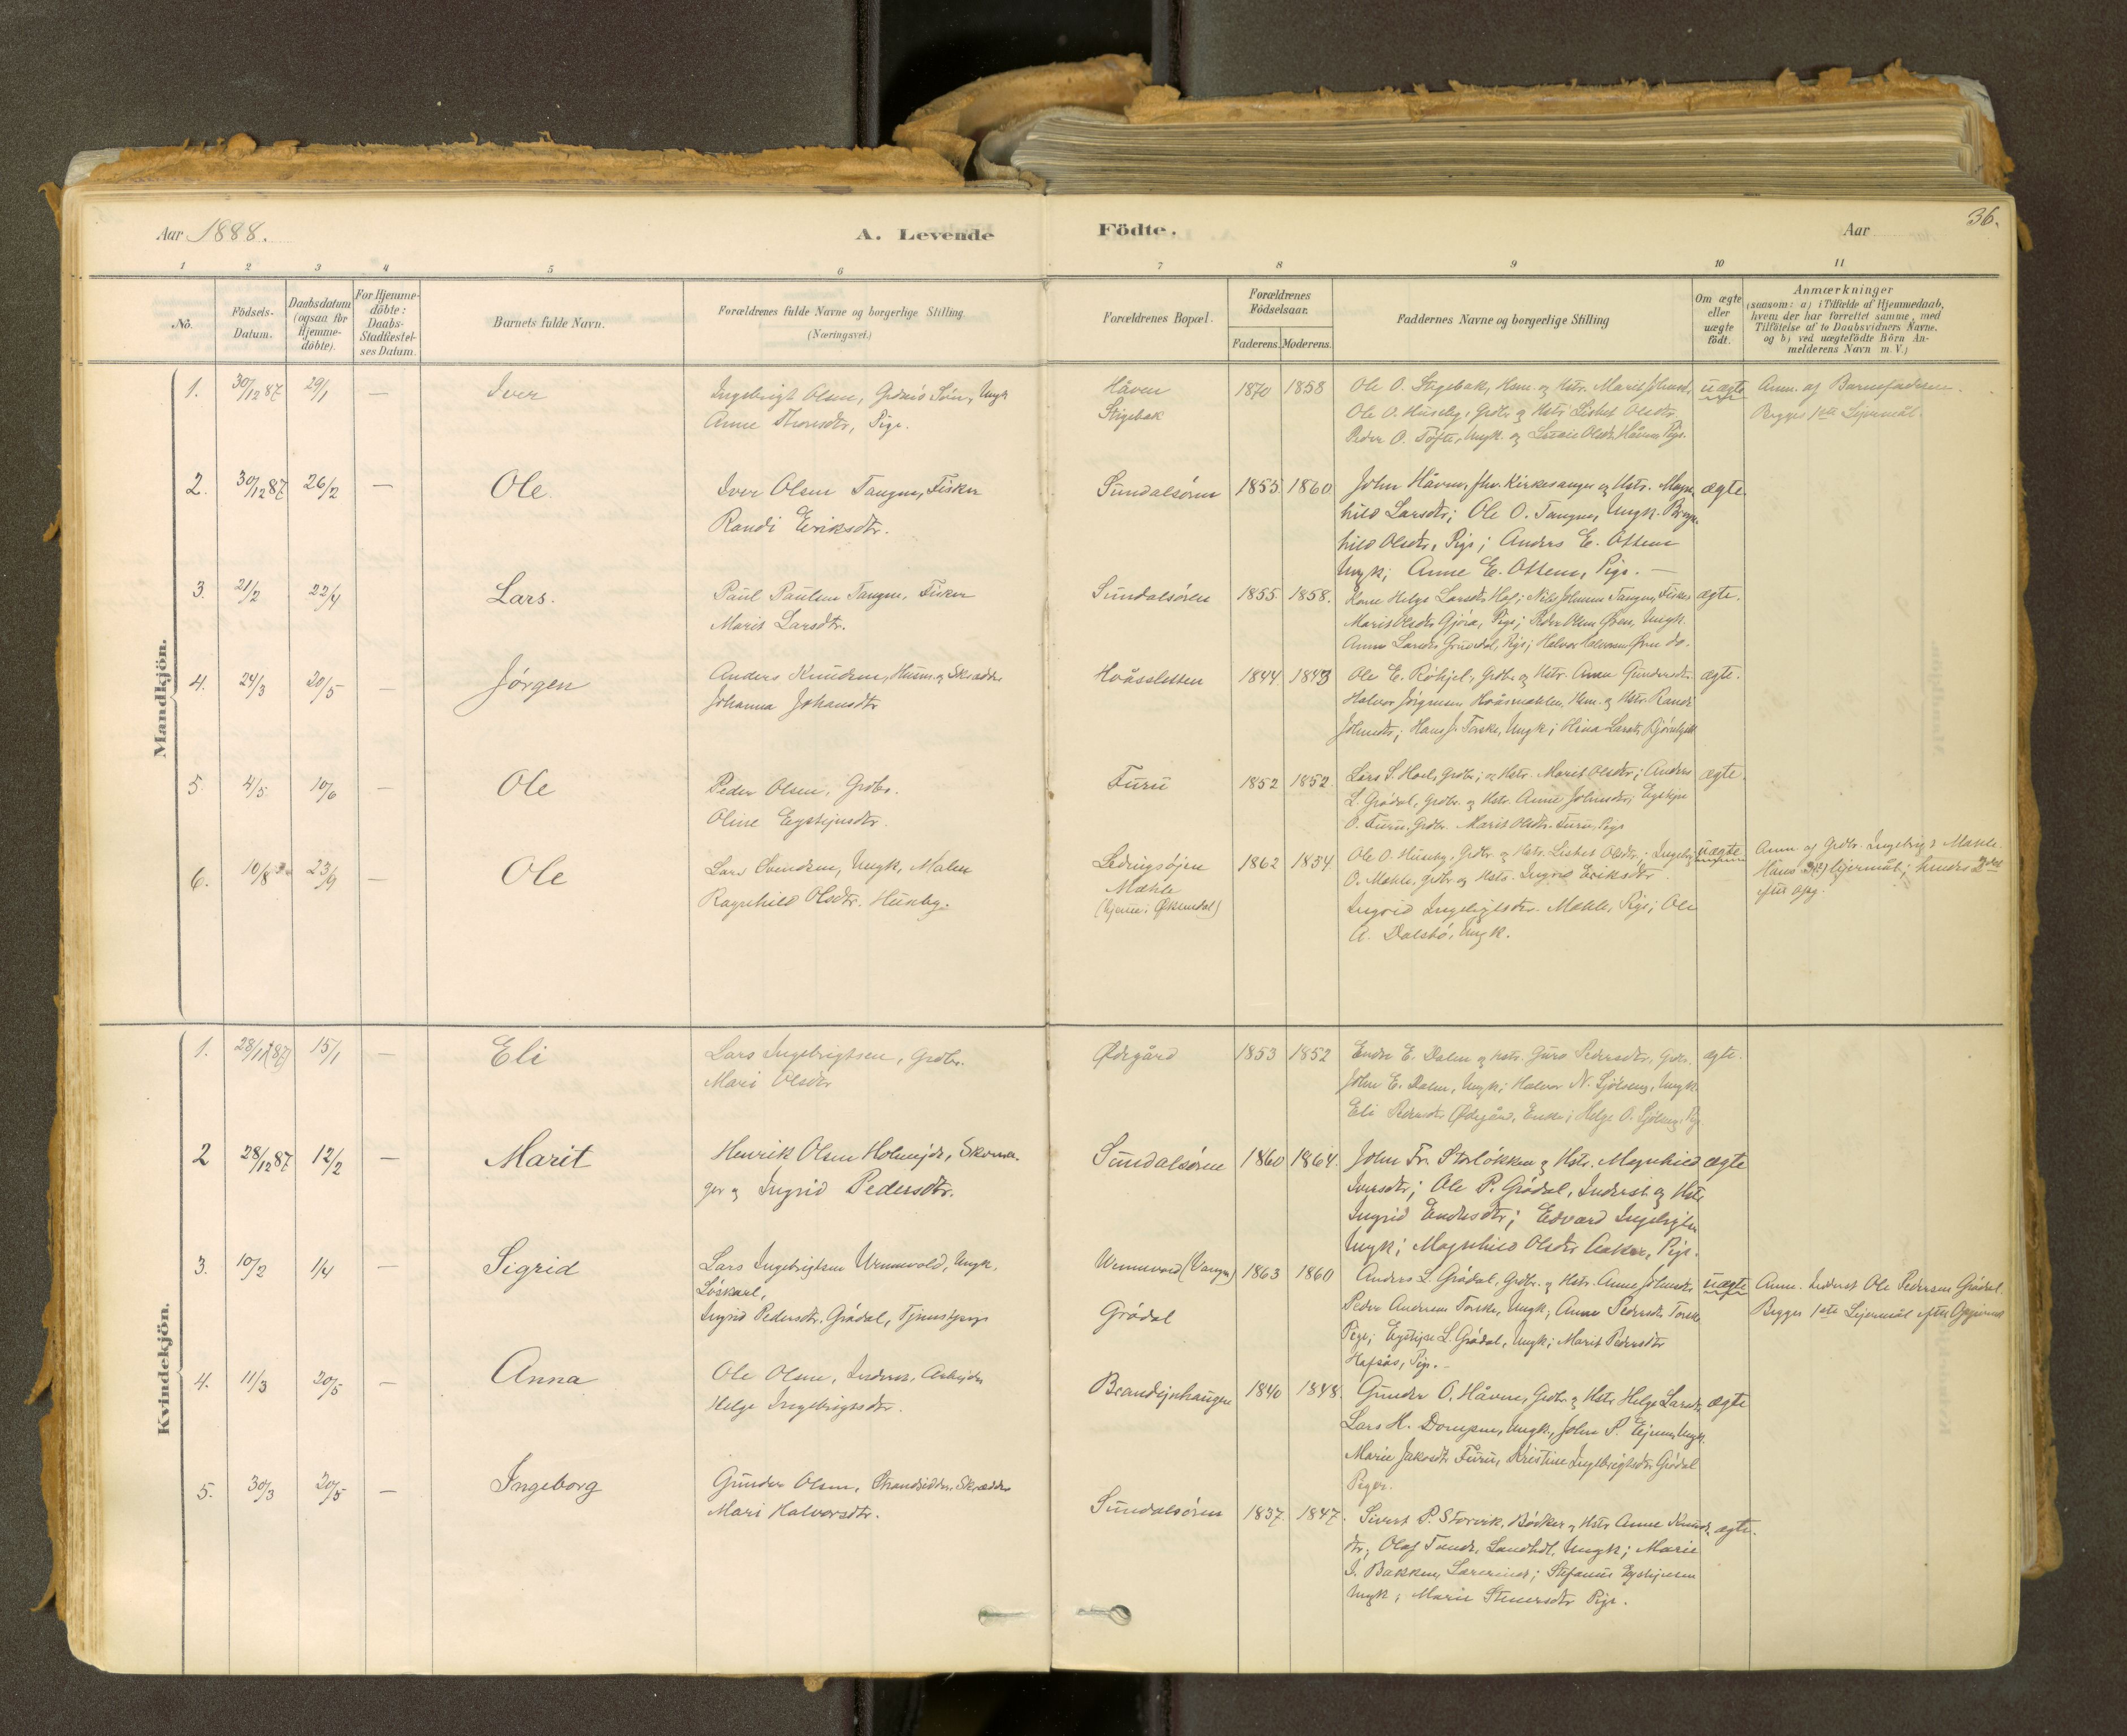 36.
Aar 1888.
A. Levende
Födte.
Aar
1 2 3 4 5 6 7 8 9 10 11
No.
Födsels-
Datum.
Daabsdatum
(ogsaa for
Hjemme-
döbte).
For Hjemme-
döbte:
Daabs-
Stadfæstel-
ses Datum.
Barnets fulde Navn.
Forældrenes fulde Navne og borgerlige Stilling
(Næringsvei.)
Forældrenes Bopæl.
Forældrenes
Födselsaar.
Faderens. Moderens.
Faddernes Navne og borgerlige Stilling
Om ægte
eller
uægte
födt.
Anmærkninger
(saasom: a) i Tilfælde af Hjemmedaab,
hvem der har forrettet samme, med
Tilföielse af to Daabsvidners Navne.
og b) ved uægtefödte Börn An-
melderens Navn m. V.)
Mandkjön.
1. 30/12 87 29/1 — Iver
Ingebrigt Olsen, Søn, Ungk
Anne Thoresdtr, Pige.
Håven
Stigebak
1870 1858
Ole O. Stigebak, Hsm. og Hstr. Marit
Ole O. Huseby, Grdbr. og Hstr Lisbet Olsdtr.
Peder O. Tøfte, Ungk. og Olsdtr. Håven, Pige.
uægte
Anm. af Barnefaderen.
Begges 1ste Lejermål.
2. 30/12 87 26/2 — Ole
Iver Olsen Tangen, Fisker
Randi Eriksdtr.
Sundalsøren 1855. 1860.
John Håven, fhv. Kirkesanger og Hstr. Magn-
hild Larsdtr; Ole O. Tangen, Ungk.
hild Olsdtr, Pige; Anders E. Ottem
Ungk; Anne E. Ottem, Pige. —
ægte.
3. 21/2 22/4 Lars.
Paul Paulsen Tangen, Fisker
Marit Larsdtr.
Sundalsøren 1855. 1858.
Kone Helge Larsdtr Hof; Nils Johnsen Tangen, Fisker
Marit Olsdtr Gjøra, Pige; Peder Olsen Øren, Ungk.
Anne Larsdtr Grødal, Pige; Halvor Halvorsen Øren do.
ægte.
4. 24/3 20/5 — Jørgen
Anders Knudsen, Husm. og Skrædder
Johanna Johansdtr
Hoåssletten 1844. 1843
Ole E. Røhjel, Grdbr. og Hstr. Anne Gundersdtr.
Halvor Jørgensen Hoåsmahlen, Hsm. og Hstr. Randi
Johnsdtr; Hans J. Torske, Ungk;
ægte.
5. 4/5 10/6 — Ole
Peder Olsen, Grdbr.
Oline Eysteinsdtr.
Furu 1852 1852.
Lars S. Hoel, Grdbr; og Hstr. Marit Olsdtr; Anders
L. Grødal, Grdbr. og Hstr. Anne Johnsdtr;
O. Furu, Grdbr. Marit Olsdtr. Furu, Pige
ægte.
6. 10/8 23/9 — Ole
Lars Svendsen, Ungk, Malen
Ragnhild Olsdtr. Huseby.
Mæhle
(hjemme i Øksendal)
1862 1854
Ole O. Huseby, Grdbr. og Hstr. Lisbet Olsdtr; Ingebrigt
O. Mæhle, Grdbr. og Hstr. Ingrid Eriksdtr.
Ingrid Ingebrigtsdtr. Mæhle, Pige; Ole
A. Dalsbø, Ungk.
uægte
Anm. af Grdbr. Ingebrigt Mæhle.
Hans 3die Lejermål; hendes 2det
efter Opg.
Kvindekjön.
1. 28/11 (87) 15/1 — Eli
Lars Ingebrigtsen, Grdbr.
Mari Olsdtr
Ødegård 1853 1852
Endre E. Dalen og Hstr. Guro Pedersdtr, Grdbr.
John E. Dalen, Ungk; Halvor N. Sjölseng, Ungk.
Eli Pedersdtr Ødegård, Enke; Helge O. Sjölseng, Pige
ægte.
2 28/12 87 12/2 — Marit
Henrik Olsen Holmejde, Skoma-
ger og Ingrid Pedersdtr.
Sundalsøren 1860 1864.
John Fr. Storløkken og Hstr. Magnhild
Iversdtr; Ole P. Grødal, Inderst og Hstr
Ingrid Endresdtr; Edvard Ingebrigtsen
Ungk; Magnhild Olsdtr Aaker, Pige.
ægte
3. 10/2 1/4 — Sigrid
Lars Ingebrigtsen Vennevold, Ungk,
Løskarl,
Ingrid Pedersdtr. Grødal, Tjenestepige
Vennevold (Vangen)
Grødal
1863 1860
Anders L. Grødal, Grdbr. og Hstr. Anne Johnsdtr
Peder Andersen Torske, Ungk; Anne Pedersdtr. Torske
Pige; L. Grødal, Ungk; Marit Pedersdtr
Hafsås, Pige. —
uægte
Anm. Inderst Ole Pedersen Grødal.
Begges 1ste Lejermål efter Opgivende
4. 11/3 20/5 — Anna
Ole Olsen, Inderst, Arbejder
Helge Ingebrigtsdtr.
Brandejnhaugen 1840 1848.
Gunder O. Håven, Grdbr. og Hstr Helge Larsdtr
Lars H. Ungk., John P. Ejnem, Ungk.
Marie Jakobsdtr Furu, Kristine Ingebrigtsdtr Grødal
Piger.
ægte
5. 30/3 20/5 — Ingeborg
Gunder Olsen, Strandsidder, Skrædder
Mari Halvorsdtr.
Sundalsøren 1837. 1847.
Sivert P. Storvik, Bødker og Hstr Anne Knuds-
dtr; Olaf Landhdl. Ungk; Marie
J. Bakken, Lærerinde; Stefanus Eysteinsen
Ungk; Marie Steinersdtr Pige.
ægte.